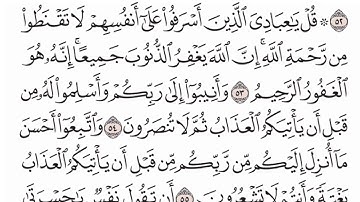 ٥٢ ۞ قُلْ يَٰعِبَادِيَ ٱلَّذِينَ أَسْرَفُوا۟ عَلَىٰٓ أَنفُسِهِمْ لَا تَقْنَطُوا۟
مِن رَّحْمَةِ ٱللَّهِ ۚ إِنَّ ٱللَّهَ يَغْفِرُ ٱلذُّنُوبَ جَمِيعًا ۚ إِنَّهُۥ هُوَ
ٱلْغَفُورُ ٱلرَّحِيمُ ٥٣ وَأَنِيبُوٓا۟ إِلَىٰ رَبِّكُمْ وَأَسْلِمُوا۟ لَهُۥ مِن
قَبْلِ أَن يَأْتِيَكُمُ ٱلْعَذَابُ ثُمَّ لَا تُنصَرُونَ ٥٤ وَٱتَّبِعُوٓا۟ أَحْسَنَ
مَآ أُنزِلَ إِلَيْكُم مِّن رَّبِّكُم مِّن قَبْلِ أَن يَأْتِيَكُمُ ٱلْعَذَابُ
بَغْتَةً وَأَنتُمْ لَا تَشْعُرُونَ ٥٥ أَن تَقُولَ نَفْسٌ يَٰحَسْرَتَىٰ